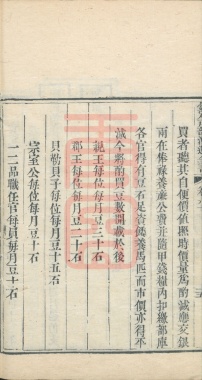 買者聽其自便價值照時價量爲酌減應交銀
兩在集廉養廉公費并隨甲錢糧內扣繳部庫
各官得有豆石足資餧養馬匹而市價亦得平
減今將酌買豆數開載於後
親王每位每月豆三十石
郡王每位每月豆二十石
貝勒貝子每位每月豆十五石
宗室公每位每月豆十石
一二品職任官每員每月豆十石